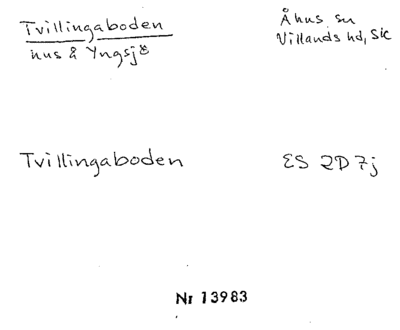 Tvillingaboden
hus å Yngsjö
Åhus sn
Villands hd, Sk
Tvillingaboden
ES 2D7j
Nr 13983